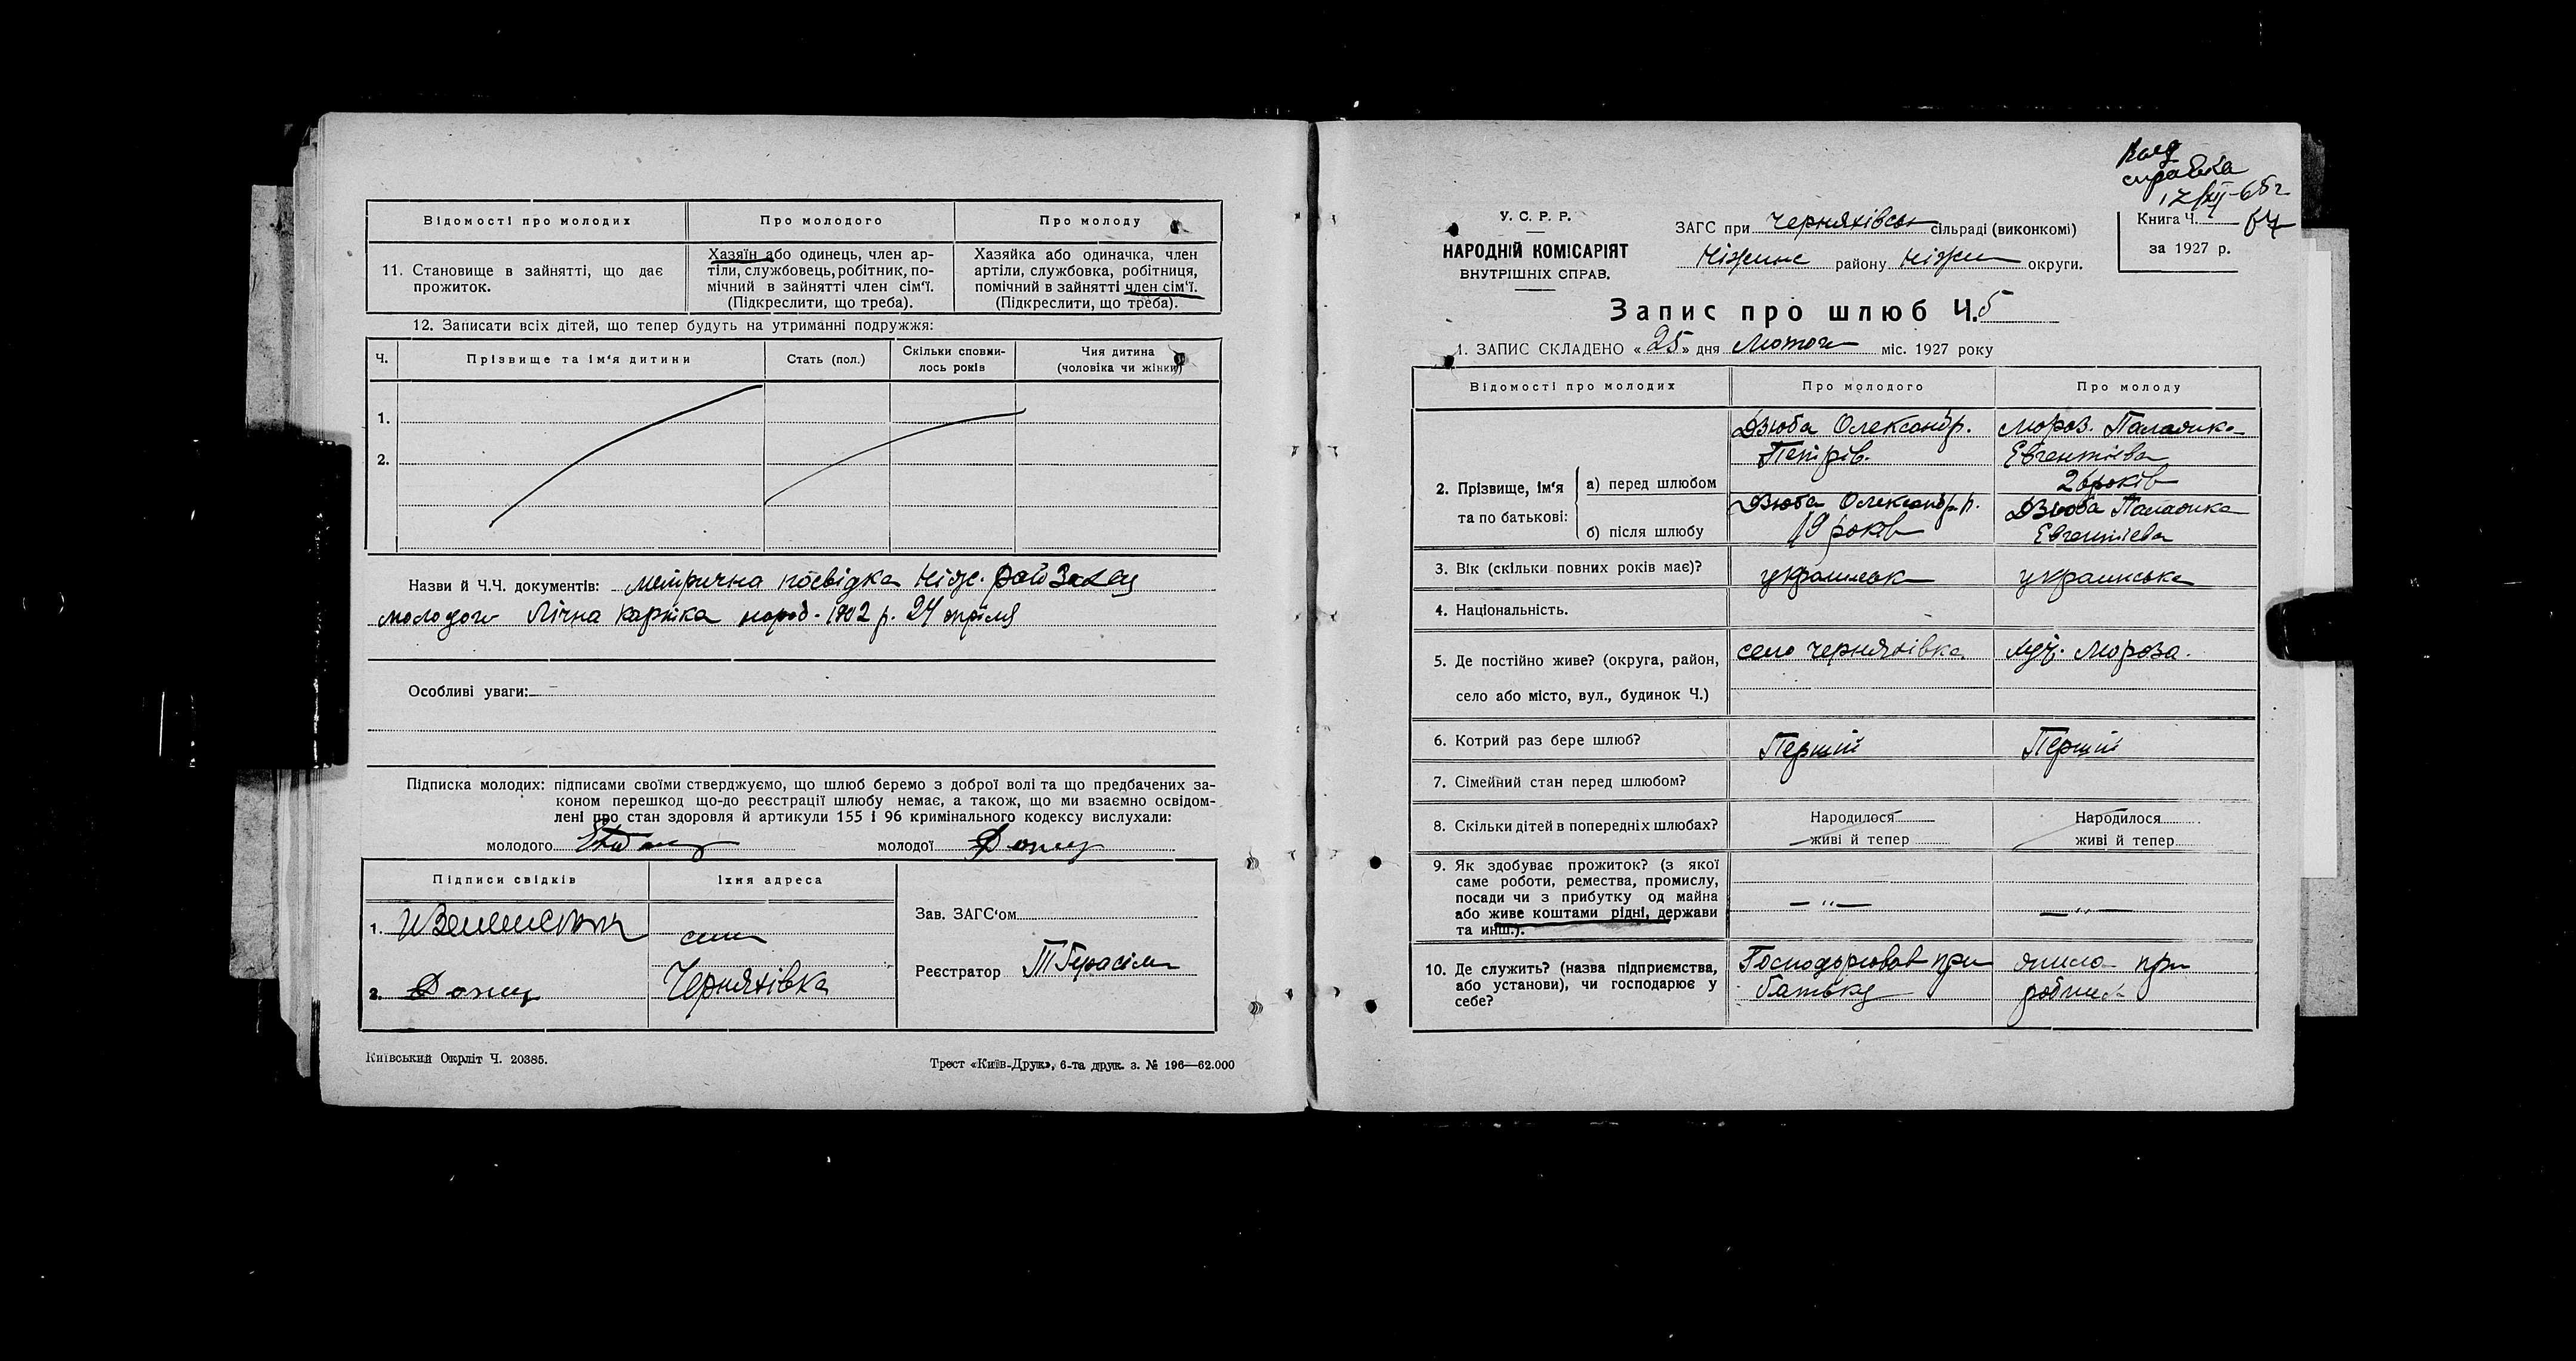 Відомості про молодих
Про молодого
Про молоду
11. Становище в зайнятті, що дає
прожиток.
Хазяїн або одинець, член ар-
тіли, службовець, робітник, по-
мічний в зайнятті член сім'ї.
(Підкреслити, що треба).
Хазяйка або одиначка, член
артіли, службовка, робітниця,
помічний в зайнятті член сім'ї.
(Підкреслити, що треба).
12. Записати всіх дітей, що тепер будуть на утриманні подружжя:
Ч.
Прізвище та ім'я дитини
Стать (пол.)
Скільки сповни-
лось років
Чия дитина
(чоловіка чи жінки)
1.
2.
Назви й Ч.Ч. документів: метрична посвідка Ніж.
молодого Лічна картка народ. 1902 р. 24 апріля
Особливі уваги:
Підписка молодих: підписами своїми стверджуємо, що шлюб беремо з доброї волі та що предбачених за-
коном перешкод що-до реєстрації шлюбу немає, а також, що ми взаємно освідом-
лені про стан здоровля й артикули 155 і 96 кримінального кодексу вислухали:
молодого
молодої
Підписи свідків
Їхня адреса
1.
село
2.
Черняхівка
Зав. ЗАГС'ом
Реєстратор
Київський Окрліт Ч. 20385.
Трест «Київ-Друк», 6-та друк. з. № 196—62.000
справка
Книга Ч.
64
за 1927 р.
У. С. Р. Р.
НАРОДНІЙ КОМІСАРІЯТ
ВНУТРІШНІХ СПРАВ.
ЗАГС при Черняхівськ сільраді (виконкомі)
Ніжинс району Ніжи округи.
Запис про шлюб Ч. 5
1. ЗАПИС СКЛАДЕНО « 25 » дня Лютого міс. 1927 року
Відомості про молодих
Про молодого
Про молоду
2. Прізвище, ім'я
та по батькові:
а) перед шлюбом
б) після шлюбу
Дзюба Олександр.
Петрів.
Дзюба Олександр п.
19 років
Мороз. Палажка
Евгентіева
20 років
Дзюба Палажка
Евгентіева
3. Вік (скільки повних років має)?
українська
4. Національність.
5. Де постійно живе? (округа, район,
село або місто, вул., будинок Ч.)
село Черняхівка
Мороза.
6. Котрий раз бере шлюб?
Першій
Першій
7. Сімейний стан перед шлюбом?
8. Скільки дітей в попередніх шлюбах?
Народилося
живі й тепер
Народилося
живі й тепер
9. Як здобуває прожиток? (з якої
саме роботи, ремества, промислу,
посади чи з прибутку од майна
або живе коштами рідні, держави
та инш.).
— „ —
— „ —
10. Де служить? (назва підприємства,
або установи), чи господарює у
себе?
Господарював при
батьку
при